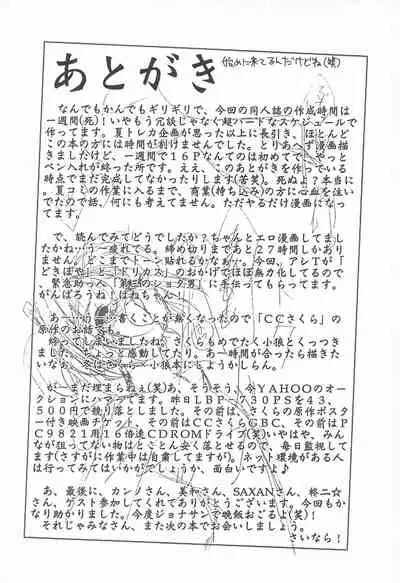 あとがき
始めに来てるんだけどね(笑)
なんでもかんでもギリギリで、今回の同人誌の作成時間は
一週間(死)!いやもう冗談じゃなく超ハードなスケジュールで
作ってます。夏トレカ企画が思った以上に長引き、ほとんど
この本の方には時間が割けませんでした。とりあへず漫画描
きましたけど、一週間で16Pなんてのは初めてで、やっと
ペン入れが終った所です。ええ、このあとがきを作っている
時点でまだ完成してなかったりします(苦笑)。死ぬよ?本当に。
夏コミの作業に入るまで、商業(持ち込み)の方に心血を注い
でたので話、何にも考えてません。ただヤるだけ漫画になっ
てます。
で、読んでみてどうでしたか?ちゃんとエロ漫画してまし
たかね…う~疲れてる。締め切りまであと27時間しかあり
ません。どこまでトーン貼れるかなぁ…。今回、アシTが「
どきぽや」と「ドリカス」のおかげでほぼ無力化してるので、
緊急助っ人「第三のショタ男」に手伝ってもらってます。
がんばろうね!はねちゃん!
あー…
書くことが無くなったので「CCさくら」の
原作のお話でも。
終ってしまいましたね。さくらもめでたく小狼とくっつき
ました。ちょっと感動してたり。あー時間が合ったら描きた
いなお。冬はさくら×小狼本にしようかしらん。
がーまだ埋まらねぇ(笑)あ、そうそう、今YAHOOのオー
クションにハマってます。昨日LBP-730PSを43,
500円で競り落としました。その前は、さくらの原作ポスター
付き映画チケット、その前はCCさくらGBC、その前はP
C9821用16倍速CDROMドライブ(笑)いやはや、みん
なが狙ってない物はとことん安く落とせるので、毎日監視して
ます(さすがに作業中は自粛してますが)。ネット環境がある人
は行ってみてはいかがでしょうか、面白いですよ♪
あ、最後に、カンノさん、美和さん、SAXANさん、柊二☆
さん、ゲスト参加してくれてありがとうございます。今回もか
なり助かりました。今度ジョナサンで晩飯おごるよ(笑)!
それじゃみなさん、また次の本でお会いしましょう。
さいなら!